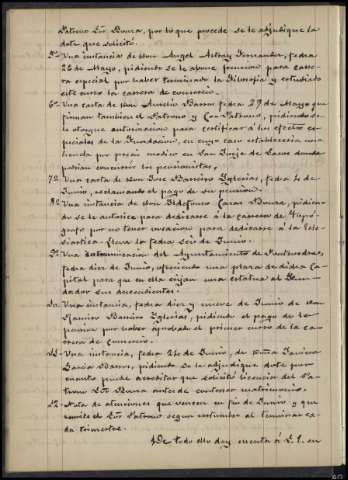 Patrono Dn. Boura, por lo que procede se le adjudique la
dote que solicitó.
5ª Una instancia de Don Angel Astray Fernandez, fecha
26 de Mayo, pidiendo se le abone pension para carre-
ra especial por haber terminado la Filosofia y estudiado
este curso la carrera de comercio.
6ª Una carta de Don Aurelio Ibarra fecha 29 de Mayo que
firman tambien el Patrono y Co-Patrono, pidiendo se
le otorgue autorizacion para certificar á los efectos es-
peciales de la Fundacion, en cuyo caso estableceria una
por precio modico en San Jorje de Sacos donde
podrian concurrir los pensionistas.
7ª Una carta de Don Jose Barreiro Yglesias, fecha 4 de
Junio, reclamando el pago de su pension.
8ª Una instancia de Don Ildefonso Garcia Boura, pidien-
do se le autorice para dedicarse á la carrera de Topó-
grafo por no tener vocacion para dedicarse á la Ecle-
siastica. Lleva la fecha seis de Junio.
9ª Una comunicacion del Ayuntamiento de Pontevedra,
fecha diez de Junio, ofreciendo una plaza de dicha Ca-
pital para que en ella erijan una estatua al Fun-
dador sus descendientes.
10. Una instancia, fecha diez y nueve de Junio de Don
Ramiro Barreiro Yglesias, pidiendo el pago de la
pension por haber aprobado el primer curso de la ca-
rrera de Comercio.
11. Una instancia, fecha 24 de Junio, de Doña Javiera
Garcia Barros, pidiendo se le adjudique dote por
cuanto puede acreditar que solicitó licencia del Pa-
trono Dn. Boura antes de contraer matrimonio.
12. Nota de atenciones que vencen en fin de Junio y que
remite el Sr. Patrono segun costumbre al terminar ca-
da trimestre.
De todo ello doy cuenta á V. E. en